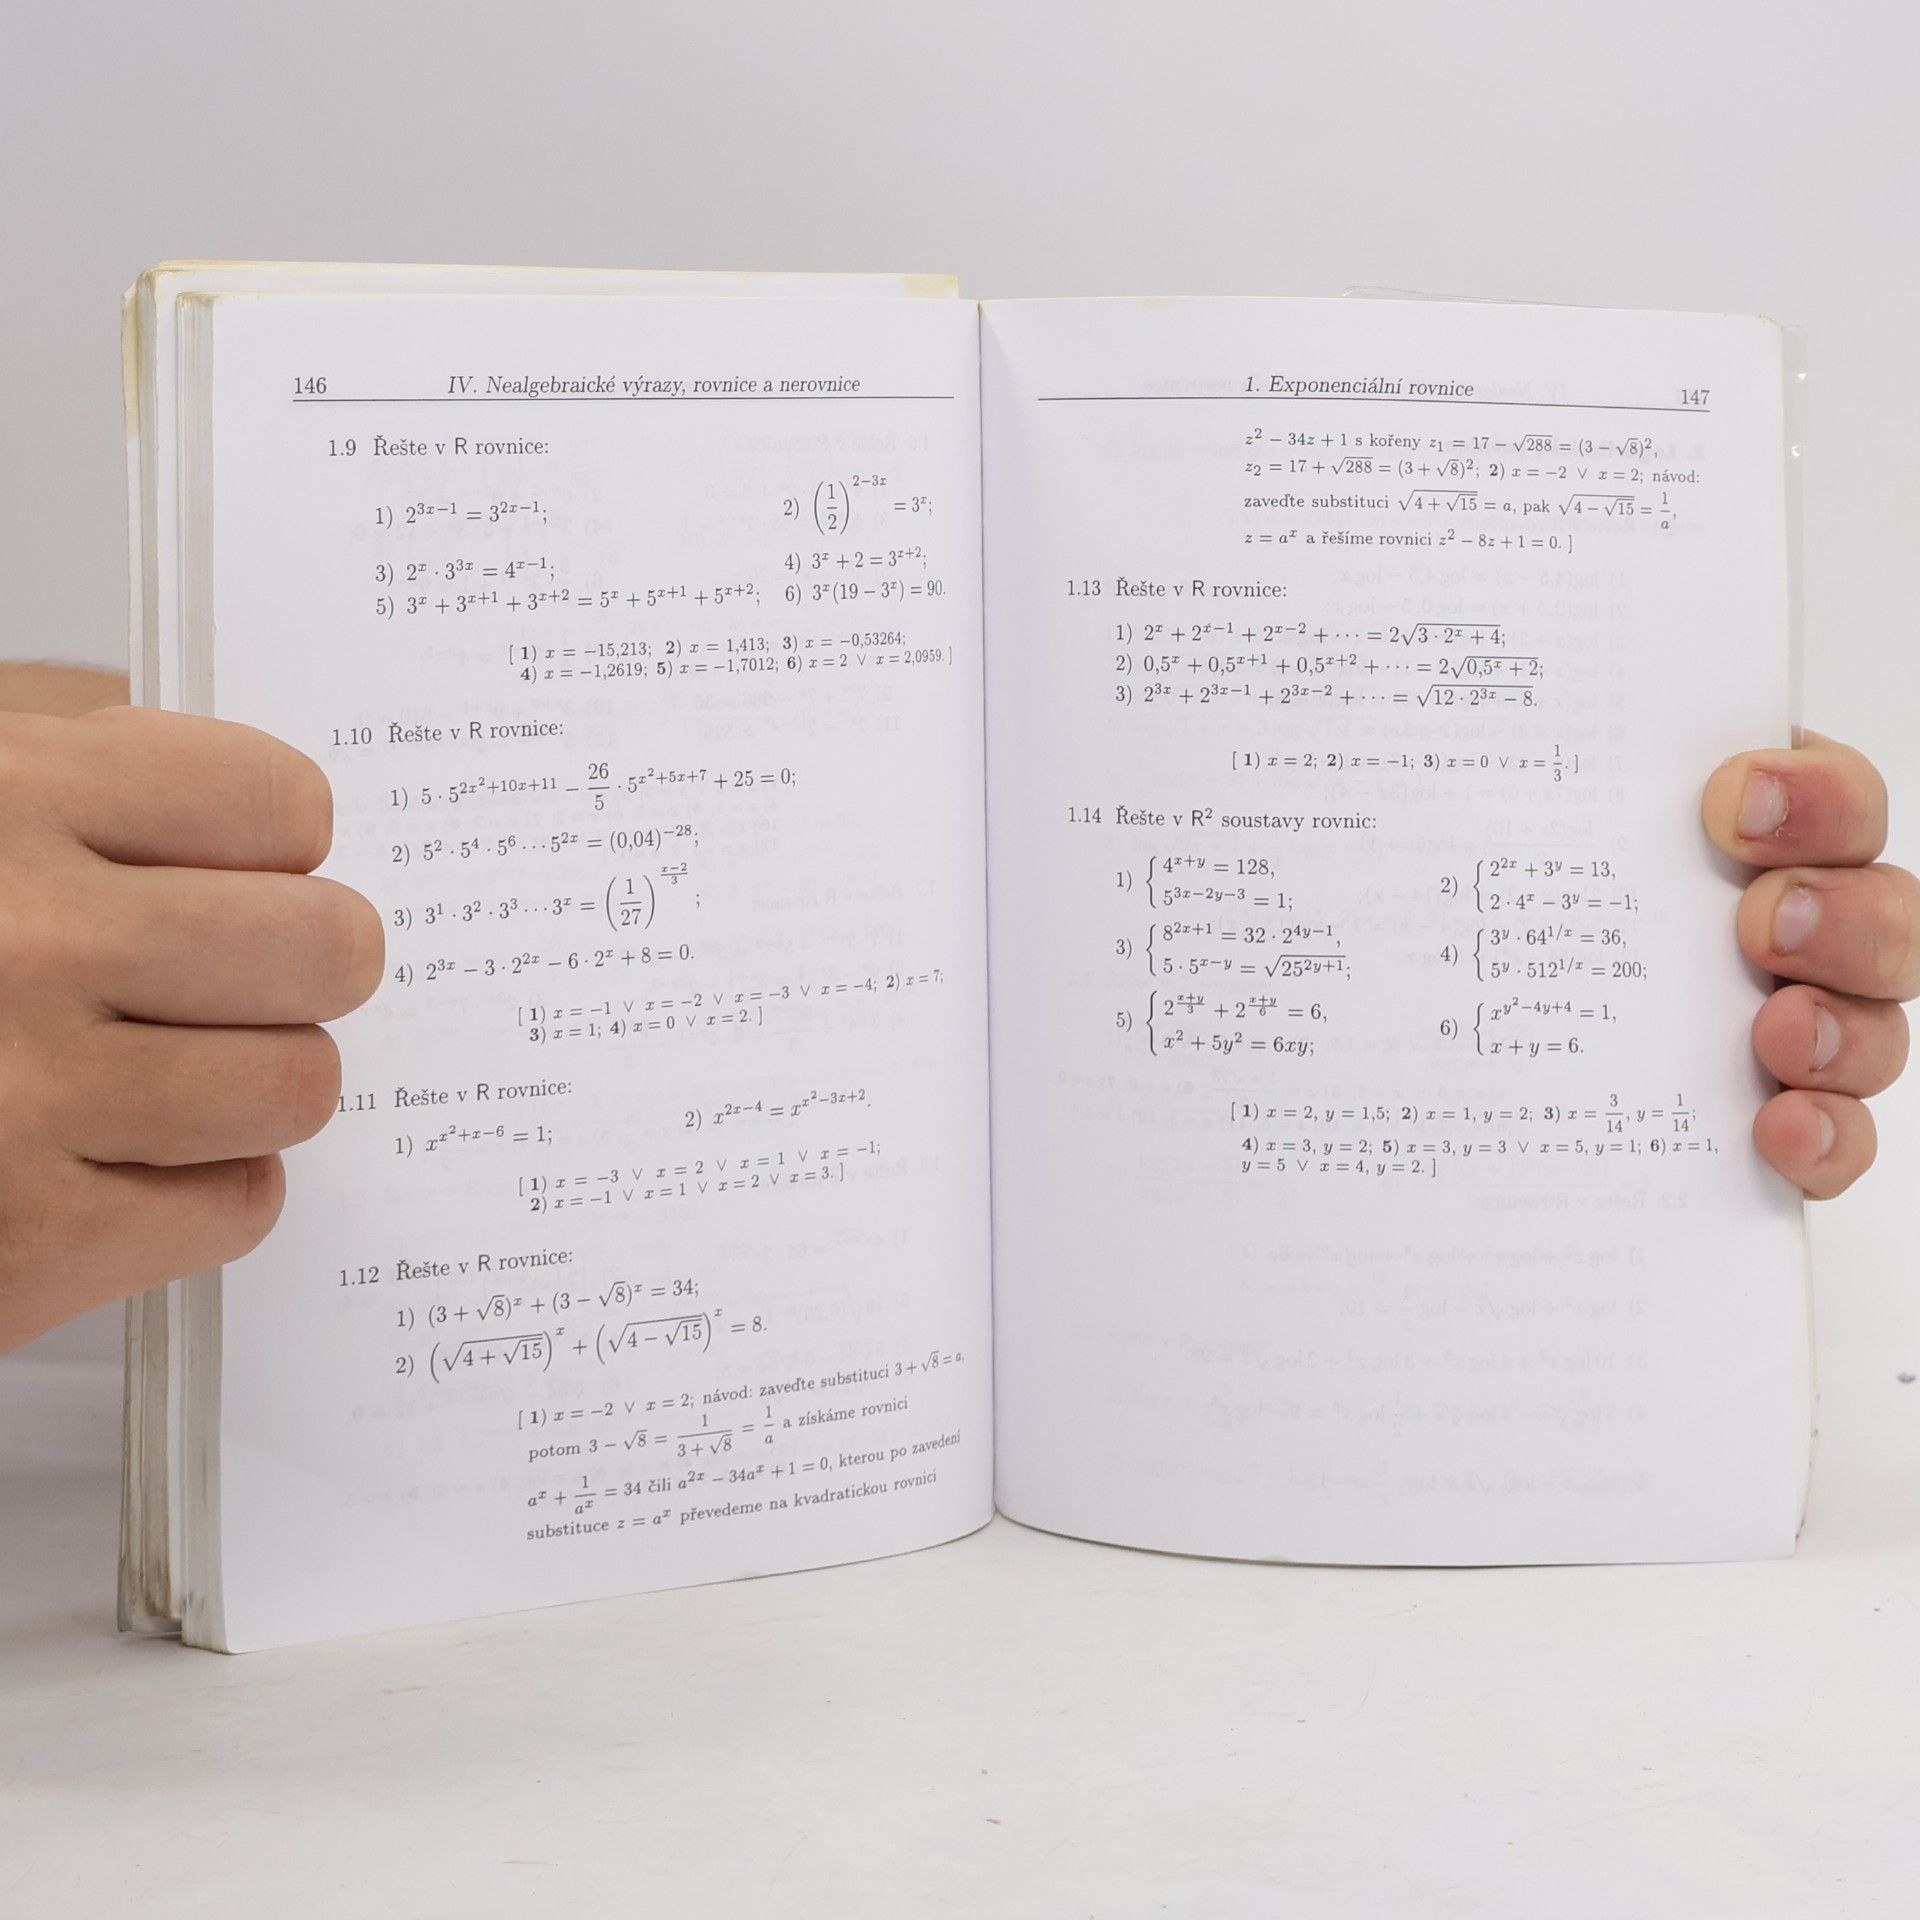 146 IV. Nealgebraické výrazy, rovnice a nerovnice
1.9 Řešte v R rovnice:
1) 2^{3x−1} = 3^{2x−1}; 2) (1/2)^{2−3x} = 3^x;
3) 2^x · 3^{3x} = 4^{x−1}; 4) 3^x + 2 = 3^{x+2};
5) 3^x + 3^{x+1} + 3^{x+2} = 5^x + 5^{x+1} + 5^{x+2}; 6) 3^x(19 − 3^x) = 90.
[ 1) x = −15,213; 2) x = 1,413; 3) x = −0,53264;
4) x = −1,2619; 5) x = −1,7012; 6) x = 2 ∨ x = 2,0959. ]
1.10 Řešte v R rovnice:
1) 5 · 5^{2x²+10x+11} − 26/5 · 5^{x²+5x+7} + 25 = 0;
2) 5² · 5⁴ · 5⁶ · · · 5^{2x} = (0,04)^{−28};
3) 3¹ · 3² · 3³ · · · 3^x = (1/27)^{(x−2)/3};
4) 2^{3x} − 3 · 2^{2x} − 6 · 2^x + 8 = 0.
[ 1) x = −1 ∨ x = −2 ∨ x = −3 ∨ x = −4; 2) x = 7;
3) x = 1; 4) x = 0 ∨ x = 2. ]
1.11 Řešte v R rovnice:
1) x^{x²+x−6} = 1; 2) x^{2x−4} = x^{x²−3x+2}.
[ 1) x = −3 ∨ x = 2 ∨ x = 1 ∨ x = −1;
2) x = −1 ∨ x = 1 ∨ x = 2 ∨ x = 3. ]
1.12 Řešte v R rovnice:
1) (3 + √8)^x + (3 − √8)^x = 34;
2) (√(4 + √15))^x + (√(4 − √15))^x = 8.
[ 1) x = −2 ∨ x = 2; návod: zaveďte substituci 3 + √8 = a,
potom 3 − √8 = 1/(3 + √8) = 1/a a získáme rovnici
a^x + 1/a^x = 34 čili a^{2x} − 34a^x + 1 = 0, kterou po zavedení
substituce z = a^x převedeme na kvadratickou rovnici
1. Exponenciální rovnice 147
z² − 34z + 1 s kořeny z₁ = 17 − √288 = (3 − √8)²,
z₂ = 17 + √288 = (3 + √8)²; 2) x = −2 ∨ x = 2; návod:
zaveďte substituci √(4 + √15) = a, pak √(4 − √15) = 1/a,
z = a^x a řešíme rovnici z² − 8z + 1 = 0. ]
1.13 Řešte v R rovnice:
1) 2^x + 2^{x−1} + 2^{x−2} + · · · = 2√(3 · 2^x + 4);
2) 0,5^x + 0,5^{x+1} + 0,5^{x+2} + · · · = 2√(0,5^x + 2);
3) 2^{3x} + 2^{3x−1} + 2^{3x−2} + · · · = √(12 · 2^{3x} − 8).
[ 1) x = 2; 2) x = −1; 3) x = 0 ∨ x = 1/3. ]
1.14 Řešte v R² soustavy rovnic:
1) { 4^{x+y} = 128, 2) { 2^{2x} + 3^y = 13,
5^{3x−2y−3} = 1; 2 · 4^x − 3^y = −1;
3) { 8^{2x+1} = 32 · 2^{4y−1}, 4) { 3^y · 64^{1/x} = 36,
5 · 5^{x−y} = √(25^{2y+1}); 5^y · 512^{1/x} = 200;
5) { 2^{(x+y)/3} + 2^{(x+y)/6} = 6, 6) { x^{y²−4y+4} = 1,
x² + 5y² = 6xy; x + y = 6.
[ 1) x = 2, y = 1,5; 2) x = 1, y = 2; 3) x = 3/14, y = 1/14;
4) x = 3, y = 2; 5) x = 3, y = 3 ∨ x = 5, y = 1; 6) x = 1,
y = 5 ∨ x = 4, y = 2. ]